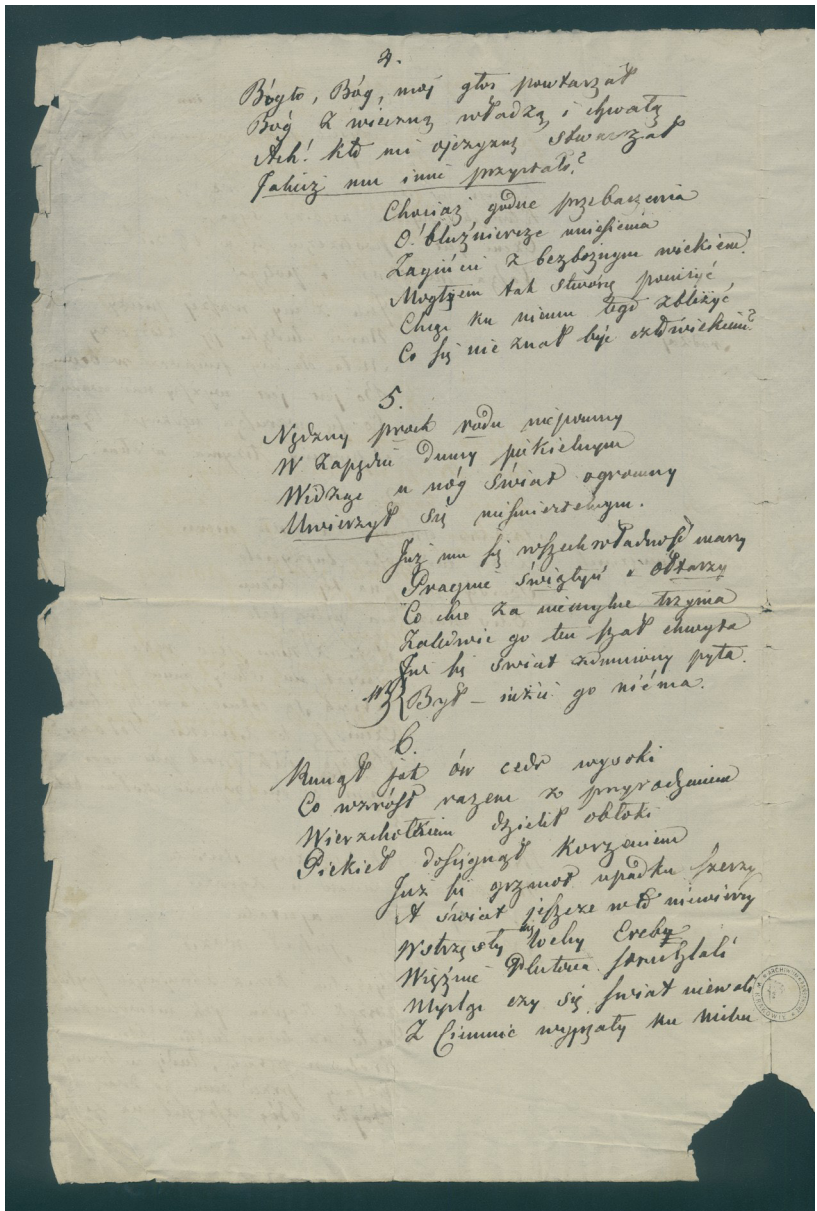 4.
Bógto, Bóg, mój głos powtarzał
Bóg z wieczną władzą i chwałą
Ach! Któż mi ojczyznę stwarzał
Jakież mu imie przystało?
Chociaż godne przebaczenia
O! bluźniercze uniesienia
Zagińcie z bezbożnym wiekiem!
Mogłżem tak stwórcę poniżyć
Chcąc ku niemu tego zbliżyć
Co się nie znał być człowiekiem?
5.
Nędzny proch rodu niepomny
W zapędzie dumy piekielnym
Widząc u nóg świat ogromny
Uwierzył się nieśmiertelnym.
Już mu się wszechwładność marzy
Pragnie świątyń i ołtarzy
Co chce za niemylne trzyma
Zaledwie go ten szał chwyta
Już się świat zdumiony pyta.
Był – iużci go niéma.
6.
Runął jak ów cedr wysoki
Co wzrósł razem z przyrodzeniem
Wierzchołkiem dzielił obłoki
Piekieł dosięgnął korzeniem
Już się grzmot upadku szerzy
A świat jeszcze mu niewierzy
Wstrzęsły się lochy Erebu
Więźnie Plutona
Myśląc czy się świat niewali
Z Ciemnic wyjrzały ku niebu